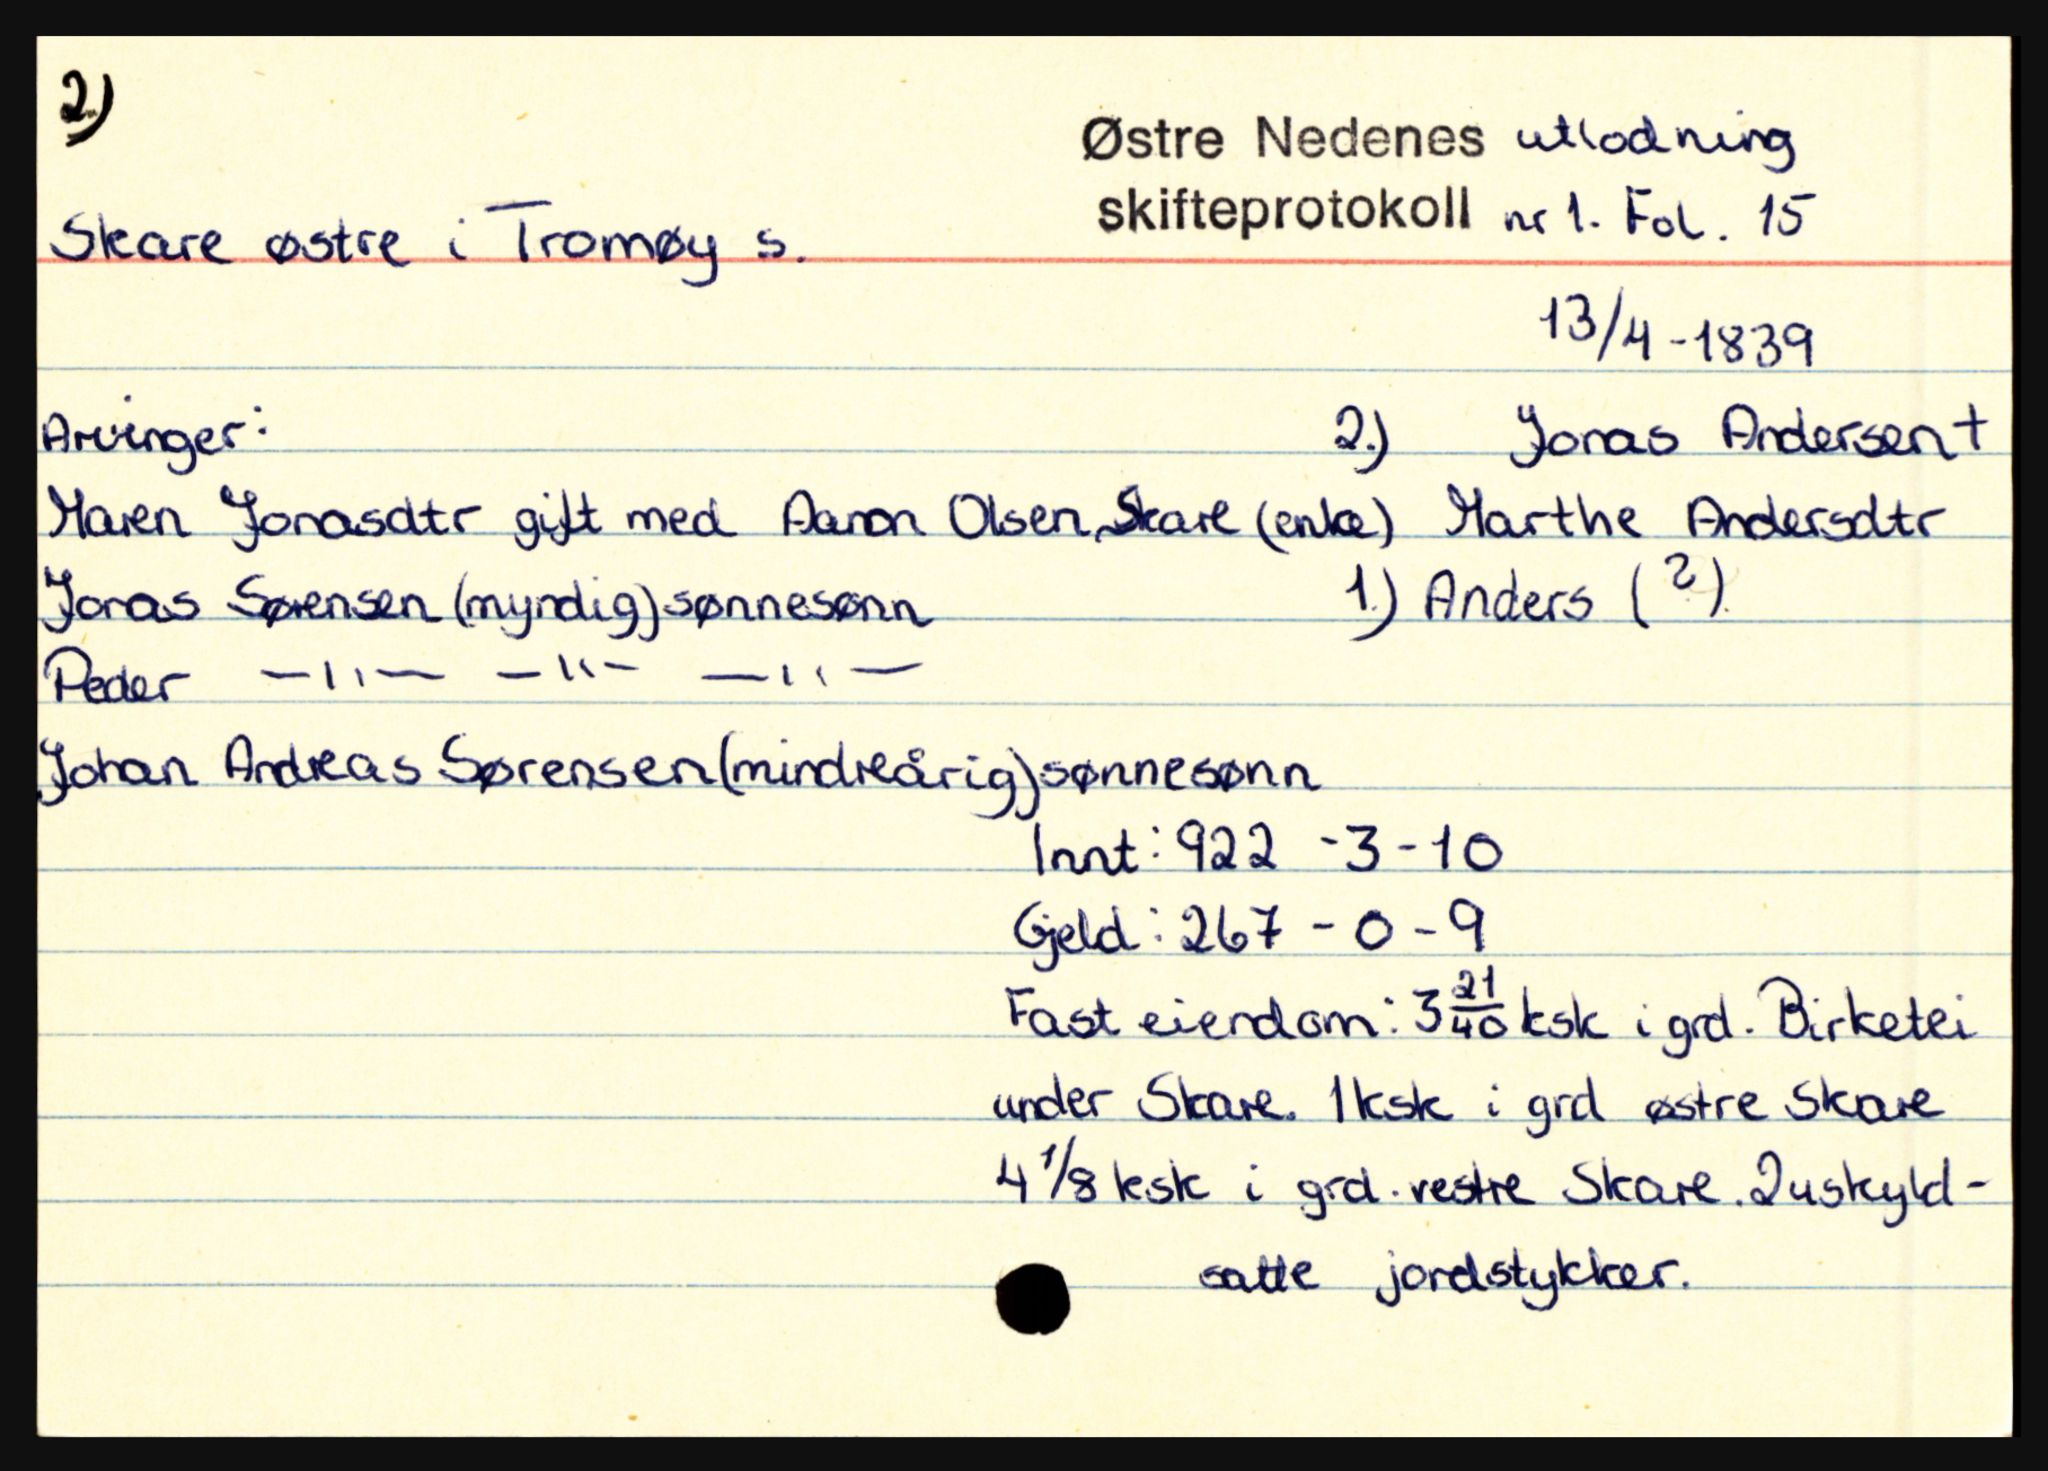 2.)
Østre Nedenes utlodning
skifteprotokoll nr 1. Fol. 15
Skare østre i Tromøy s.
13/4-1839
Arvinger: 2.) Jonas Andersen +
Maren Jonasdtr gift med Aanon Olsen, Skare (enke) Marthe Andersdtr
Jonas Sørensen (myndig) sønnesønn 1.) Anders (?)
Peder —"— —"— —"—
Johan Andreas Sørensen (mindreårig) sønnesønn
Innt: 922 - 3 - 10
Gjeld: 267 - 0 - 9
Fast eiendom: 3 21/40 ksk i grd. Birketei
under Skare. 1 ksk i grd østre Skare
4 1/8 ksk i grd. vestre Skare. 2 uskyld-
satte jordstykker.